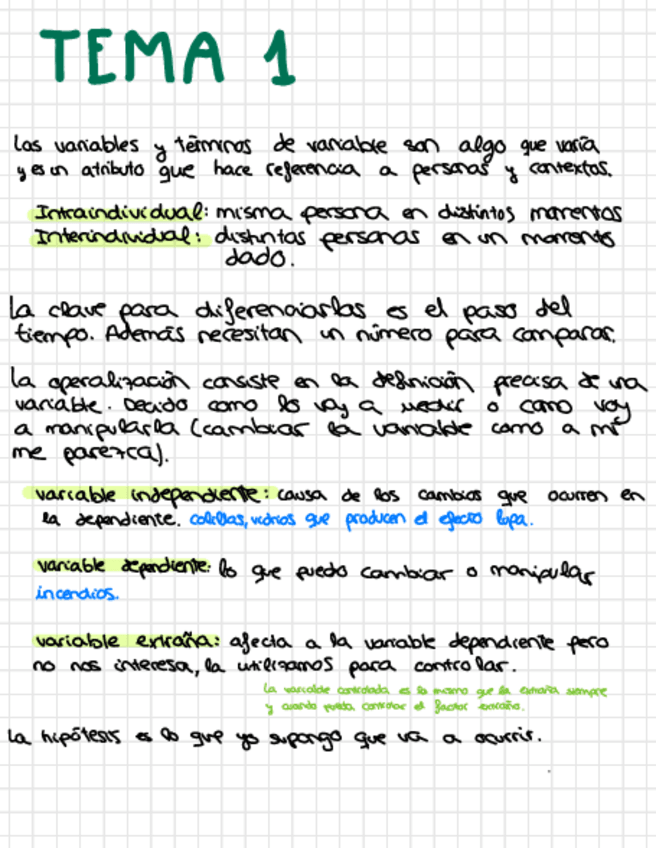 TEMA 1
Las variables y términos de variable son algo que varía
y es un atributo que hace referencia a personas y contextos.
Intraindividual: misma persona en distintos momentos
Interindividual: distintas personas en un momento
dado.
La clave para diferenciarlas es el paso del
tiempo. Además necesitan un número para comparar.
La operalización consiste en la definición precisa de una
variable. Decido como lo voy a medir o como voy
a manipularla (cambiar la variable como a mí
me parezca).
variable independiente: causa de los cambios que ocurren en
la dependiente. colillas, vidrios que producen el efecto lupa.
variable dependiente: lo que puedo cambiar o manipular
incendios.
variable extraña: afecta a la variable dependiente pero
no nos interesa, la utilizamos para controlar.
La variable controlada es la misma que la extraña siempre
y cuando pueda controlar el factor extraño.
La hipótesis es lo que yo supongo que va a ocurrir.